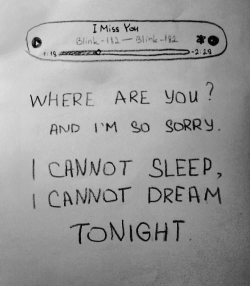 I Miss You
Blink-182 — Blink-182
1:19 -2:28
WHERE ARE YOU?
AND I'M SO SORRY.
I CANNOT SLEEP,
I CANNOT DREAM
TONIGHT